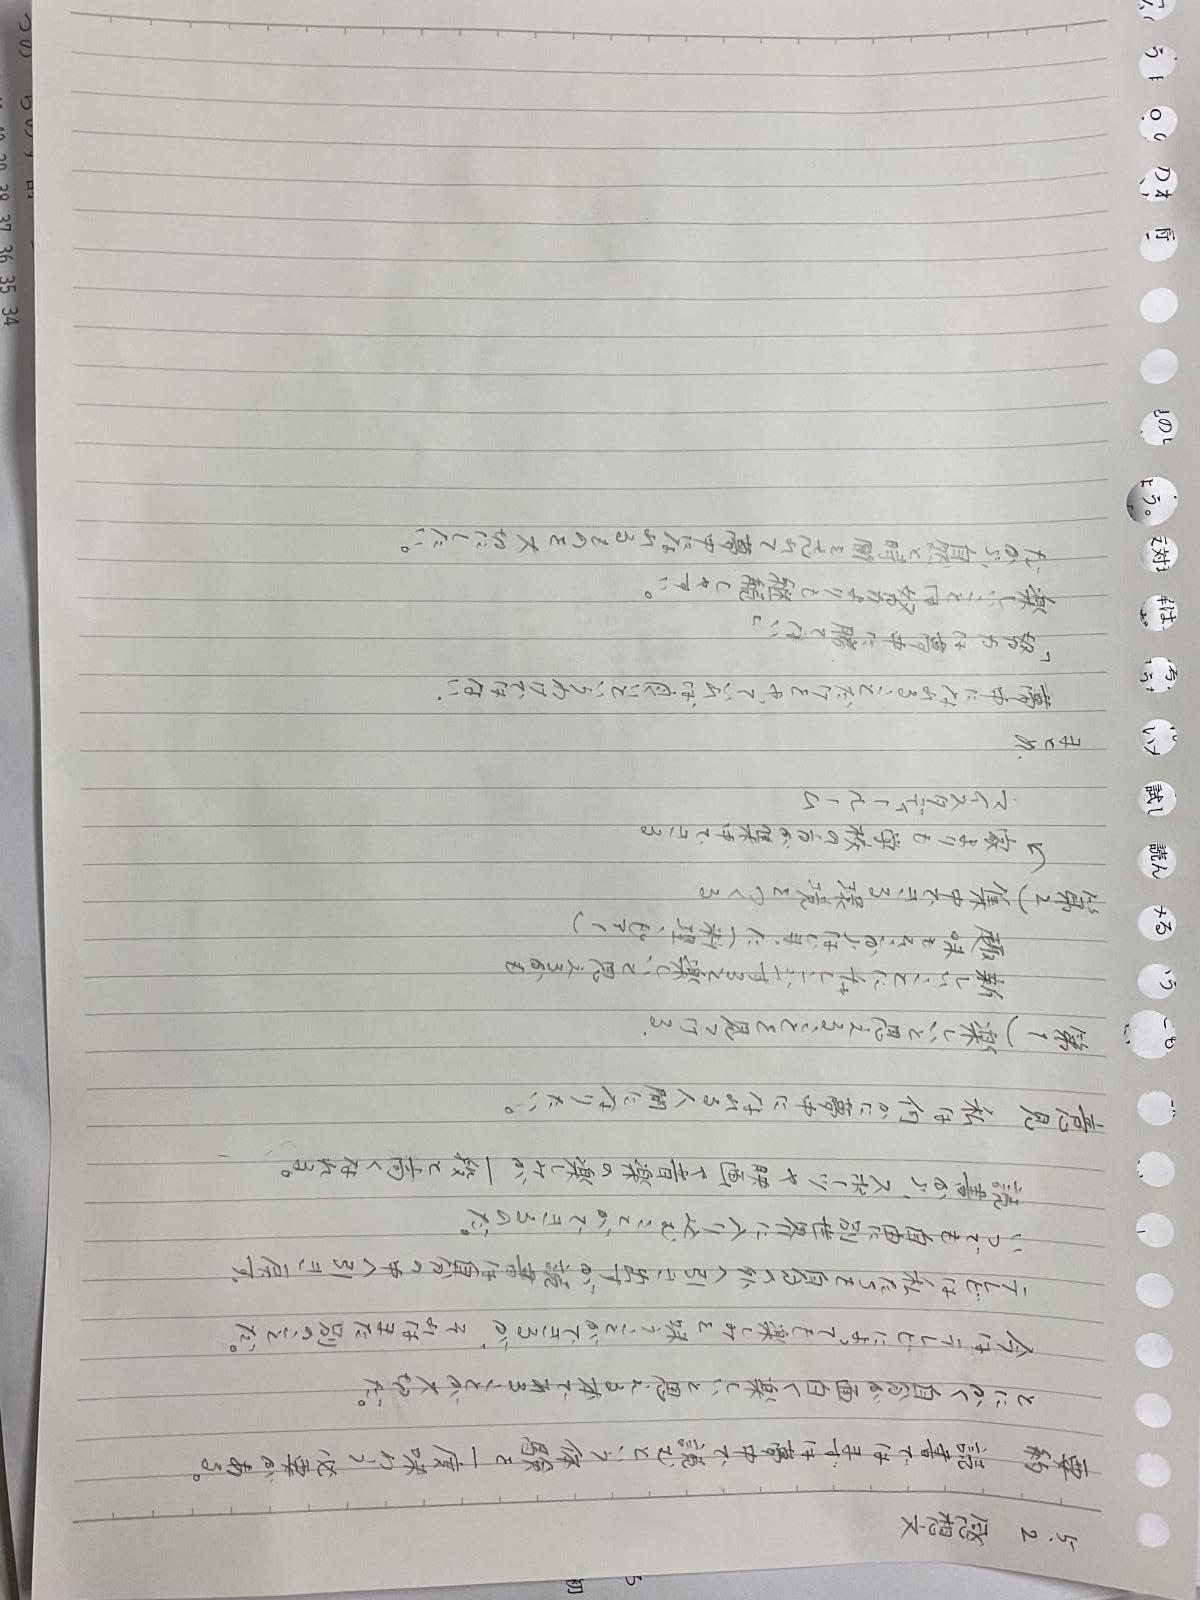 5.2 感想文
要約 読書ではまずは夢中で読むという体験を一度味わう必要がある。
とにかく自分が面白く楽しいと思える本であることが大切だ。
今はテレビによっても楽しみを味うことができるが、それはまた別のことだ。
テレビは私たちを自分の外へ引き出すが読書は自分の中へ引き戻す
いつでも自由に別世界に入り込むことができるのだ。
読書が、スポーツや映画で音楽の楽しみが一段と高くなれる。
意見 私は何かに夢中になれる人間になりたい。
第1) 楽しいと思えることを見つける.
新しいことにチャレンジすると楽しいと思えるかも
趣味もそれがはじまた(料理、ピアノ)
第2) 集中できる環境をつくる
↳ 家よりも学校の方が集中できる
マイスタディールーム
まとめ
夢中になれることだけをやっていれば良いというわけではない.
「努力は夢中に勝てない」
楽しいことは努力よりも継続しやすい。
なが、自然と時間を忘れて夢中になれるものを大切にしたい。
35 34
36
37
38
39